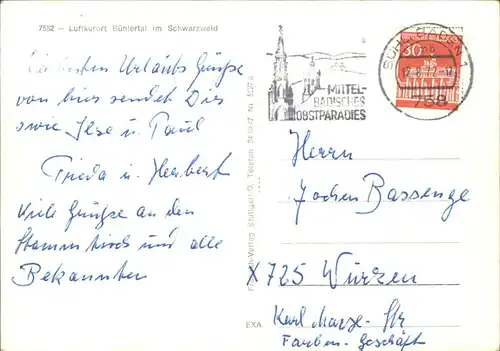 7582 - Luftkurort Bühlertal im Schwarzwald
Die besten Urlaubs Grüße
von hier sendet Dir
sowie Ilse u. Paul
Frieda u. Herbert
Viele Grüße an den
Stammtisch und alle
Bekannten
MITTEL-
BADISCHES
OBSTPARADIES
BÜHL (BADEN) 1
758
30
Herrn
Jochen Bassenge
X 725 Wurzen
Karl Marx - Str
Farben - Geschäft
Verlag Stuttgart Telefon
EXA